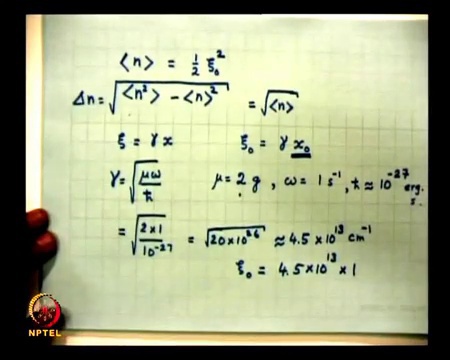 ⟨n⟩ = 1/2 ξ₀²
Δn = √(⟨n²⟩ - ⟨n⟩²) = √⟨n⟩
ξ = γx ξ₀ = γ x₀
γ = √(μω/ħ) μ = 2 g, ω = 1 s⁻¹, ħ ≈ 10⁻²⁷ erg. s.
= √(2×1/10⁻²⁷) = √(20×10²⁶) ≈ 4.5 × 10¹³ cm⁻¹
ξ₀ = 4.5×10¹³ × 1
NPTEL